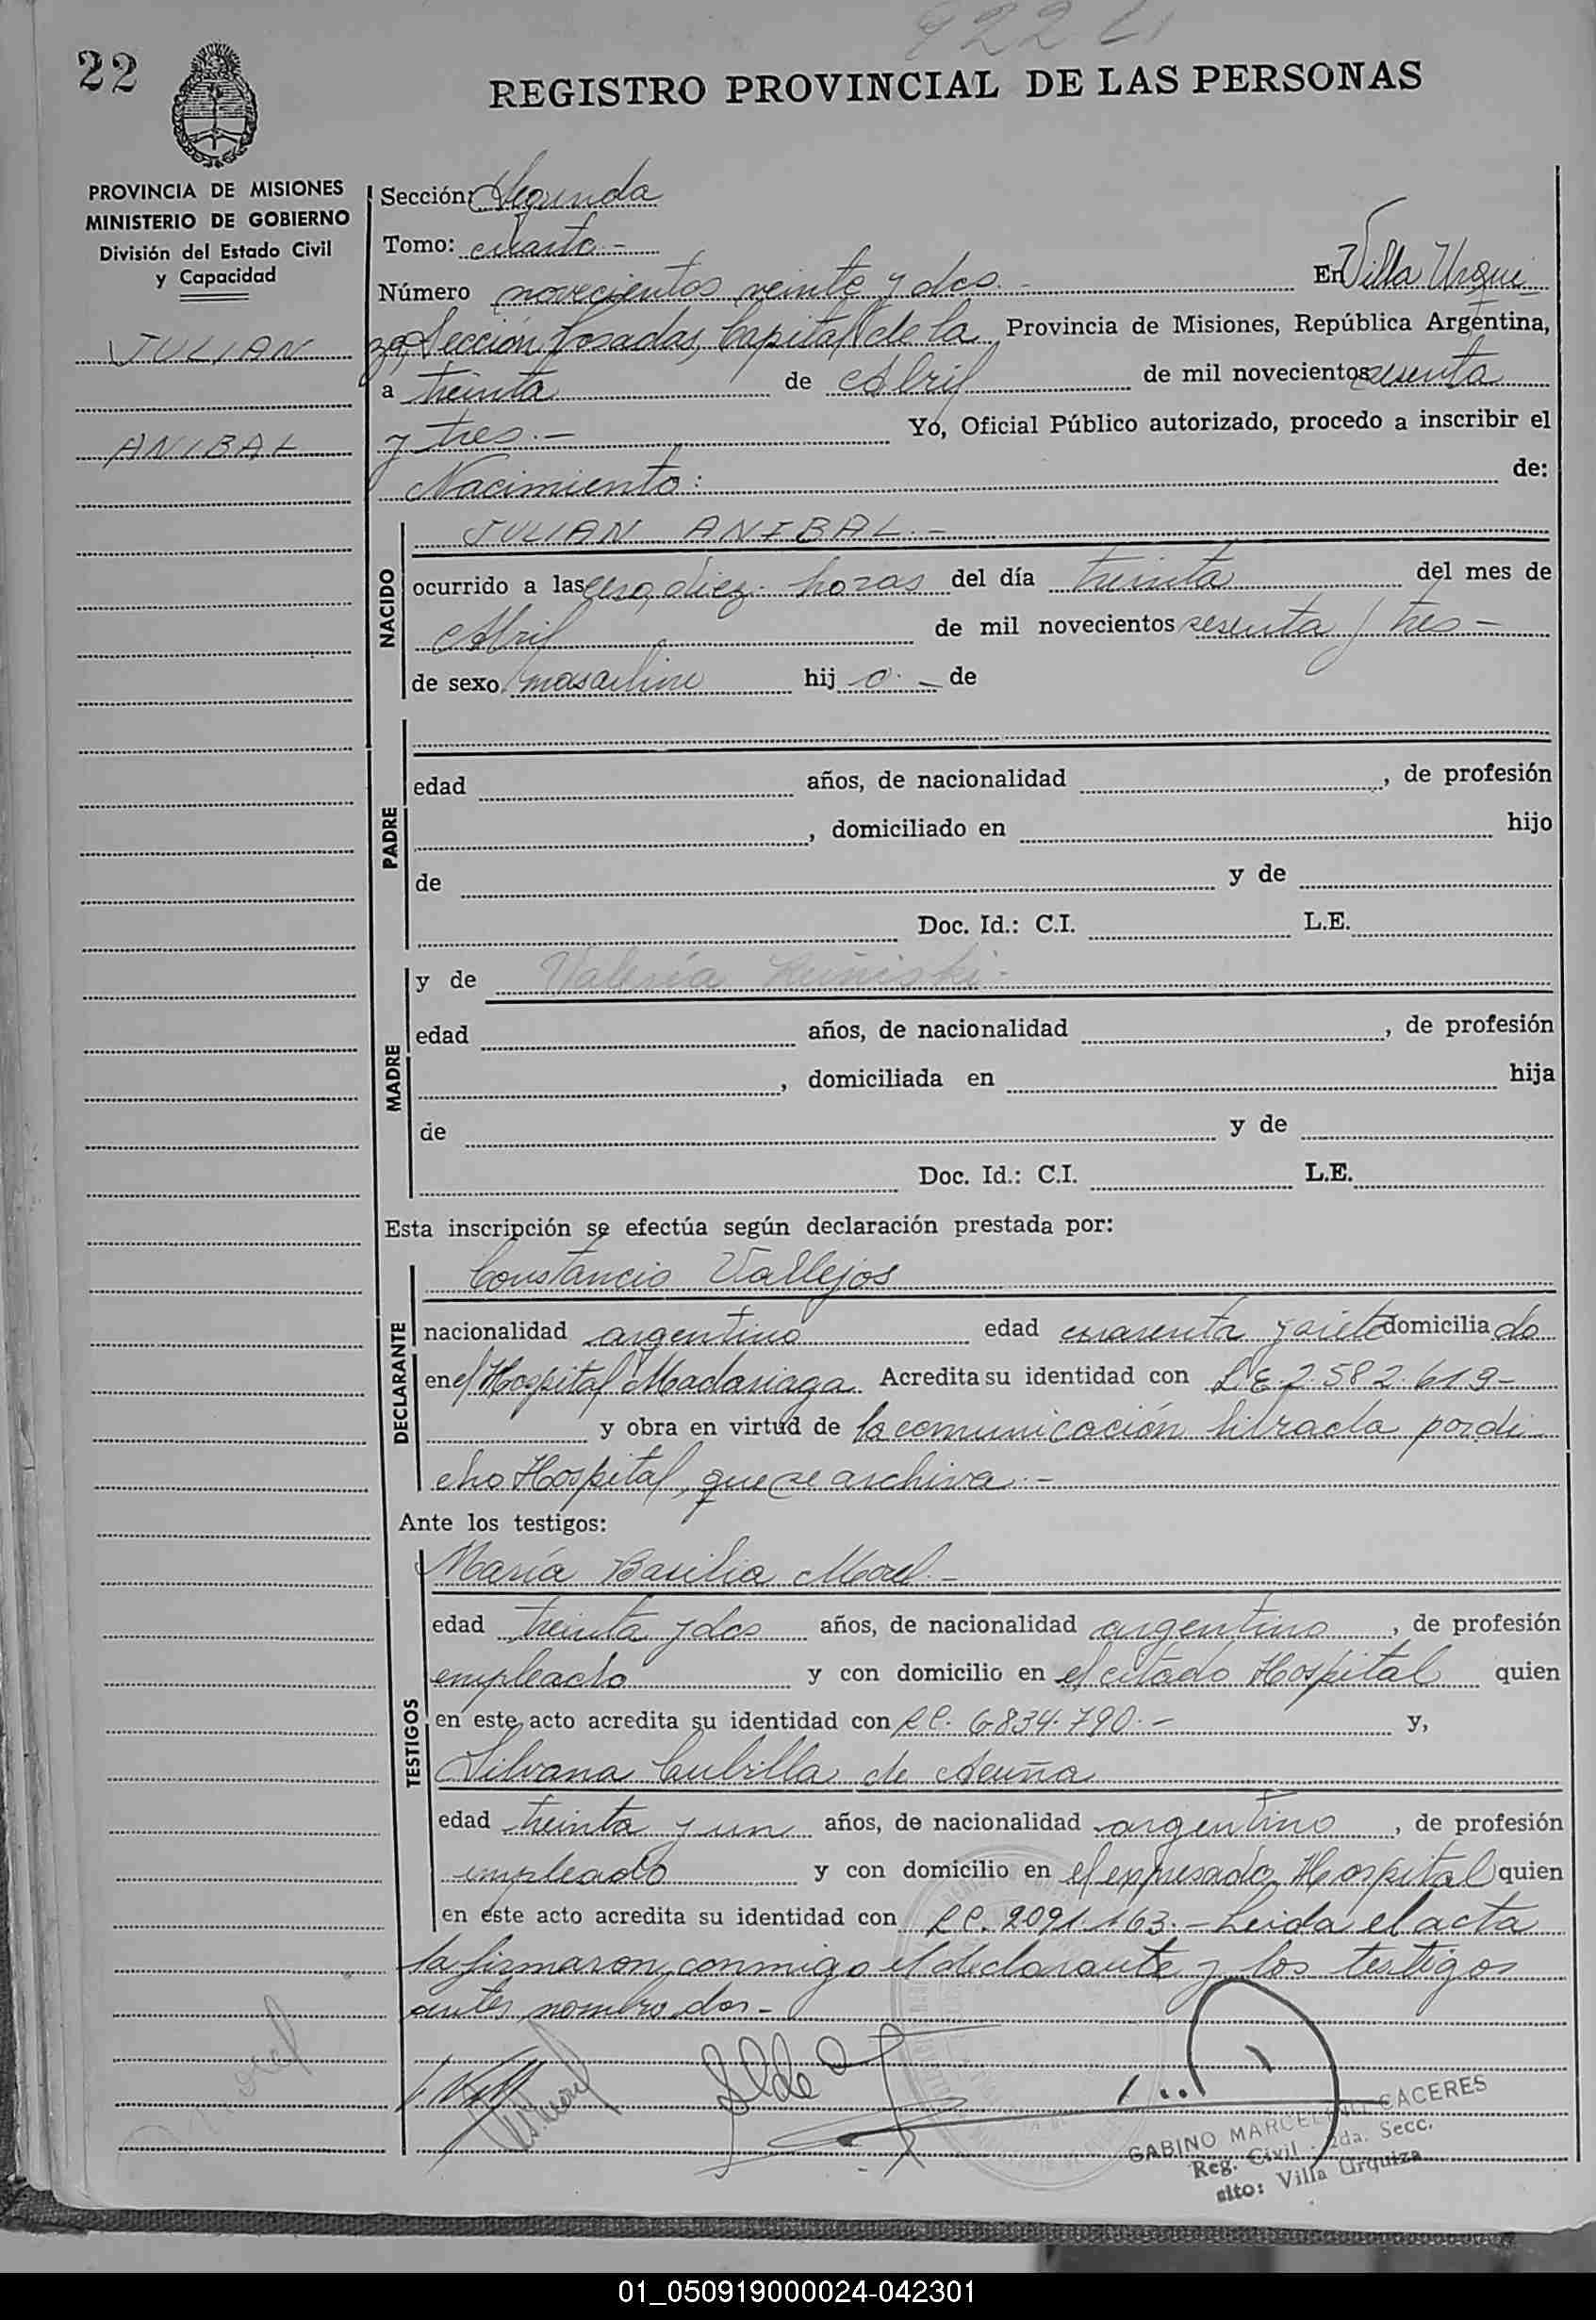 922
22
REGISTRO PROVINCIAL DE LAS PERSONAS
PROVINCIA DE MISIONES
MINISTERIO DE GOBIERNO
División del Estado Civil
y Capacidad
JULIAN
ANIBAL
Sección: Segunda
Tomo: cuarto.-
Número novecientos veinte y dos.- En Villa Urqui-
za, Sección Posadas, Capital de la Provincia de Misiones, República Argentina,
a treinta de Abril de mil novecientos sesenta
y tres.- Yo, Oficial Público autorizado, procedo a inscribir el
Nacimiento: de:
NACIDO
JULIAN ANIBAL.-
ocurrido a las cero, diez. horas del día treinta del mes de
Abril de mil novecientos sesenta y tres-
de sexo masculino hij o.- de
PADRE
edad años, de nacionalidad , de profesión
, domiciliado en hijo
de y de
Doc. Id.: C.I. L.E.
MADRE
y de Valeria
edad años, de nacionalidad , de profesión
, domiciliada en hija
de y de
Doc. Id.: C.I. L.E.
Esta inscripción se efectúa según declaración prestada por:
DECLARANTE
Constancio Vallejos
nacionalidad argentino edad cuarenta y siete domicilia do
en el Hospital Madariaga. Acredita su identidad con L.E. 2.582.619-
y obra en virtud de la comunicación librada por di-
cho Hospital, que se archiva.-
Ante los testigos:
TESTIGOS
María Basilia Morel.-
edad treinta y dos años, de nacionalidad argentino, de profesión
empleado y con domicilio en el citado Hospital quien
en este acto acredita su identidad con L.C. 6.834.790.- y,
Silvana Cubilla de Acuña
edad treinta y un años, de nacionalidad argentino, de profesión
empleado y con domicilio en el expresado Hospital quien
en este acto acredita su identidad con L.C. 2091.163.- Leida el acta
la firmaron conmigo el declarante y los testigos
antes nomero dos-
GABINO MARCELINO CACERES
Reg. Civil 2da. Secc.
sito: Villa Urquiza
01_050919000024-042301